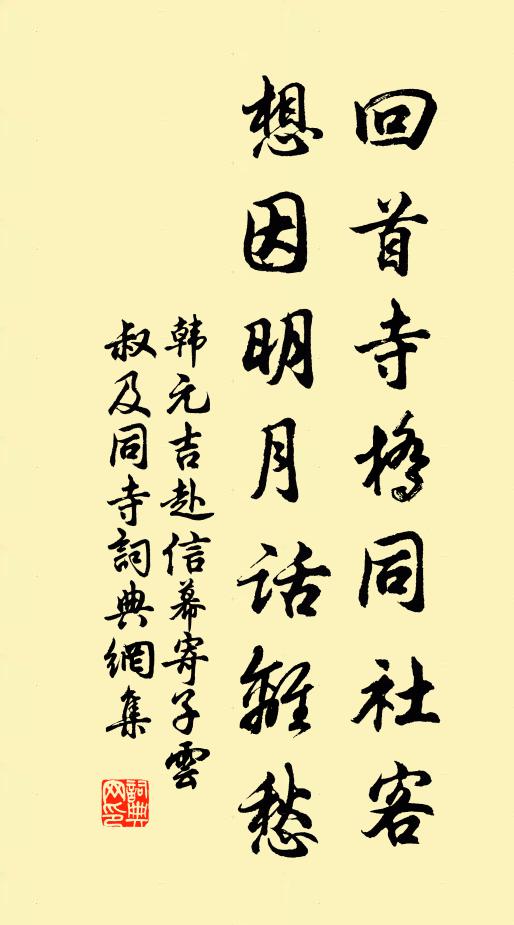 回首寺橋同社客
想因明月话離愁
韩元吉赴信幕寄子雲
叔及同寺詞典網集
詞典网印